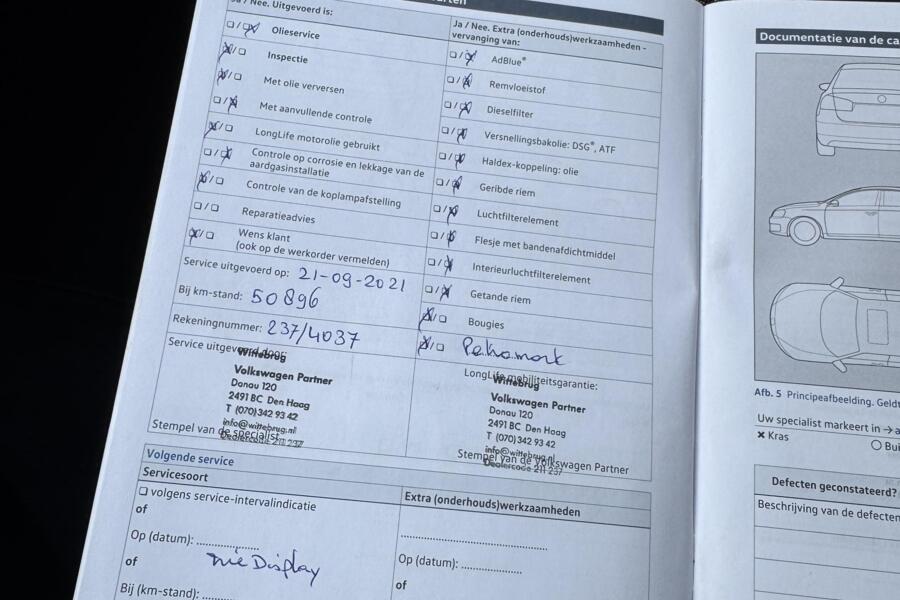 Ja / Nee. Uitgevoerd is:
Olieservice
Inspectie
Met olie verversen
Met aanvullende controle
LongLife motorolie gebruikt
Controle op corrosie en lekkage van de
aardgasinstallatie
Controle van de koplampafstelling
Reparatieadvies
Wens klant
(ook op de werkorder vermelden)
Service uitgevoerd op: 21-09-2021
Bij km-stand: 50896
Rekeningnummer: 237/4037
Service uitgevoerd door:
Wittebrug
Volkswagen Partner
Donau 120
2491 BC Den Haag
T (070) 342 93 42
info@wittebrug.nl
Dealercode 211 237
Stempel van de specialist
Ja / Nee. Extra (onderhouds)werkzaamheden -
vervanging van:
AdBlue®
Remvloeistof
Dieselfilter
Versnellingsbakolie: DSG®, ATF
Haldex-koppeling: olie
Geribde riem
Luchtfilterelement
Flesje met bandenafdichtmiddel
Interieurluchtfilterelement
Getande riem
Bougies
LongLife mobiliteitsgarantie:
Wittebrug
Volkswagen Partner
Donau 120
2491 BC Den Haag
T (070) 342 93 42
info@wittebrug.nl
Dealercode 211 237
Stempel van de Volkswagen Partner
Volgende service
Servicesoort
volgens service-intervalindicatie
of
Op (datum):
zie Display
of
Bij (km-stand):
Extra (onderhouds)werkzaamheden
Op (datum):
of
Documentatie van de ca
Afb. 5 Principeafbeelding. Geldt
Uw specialist markeert in → a
× Kras
Bui
Defecten geconstateerd?
Beschrijving van de defecten